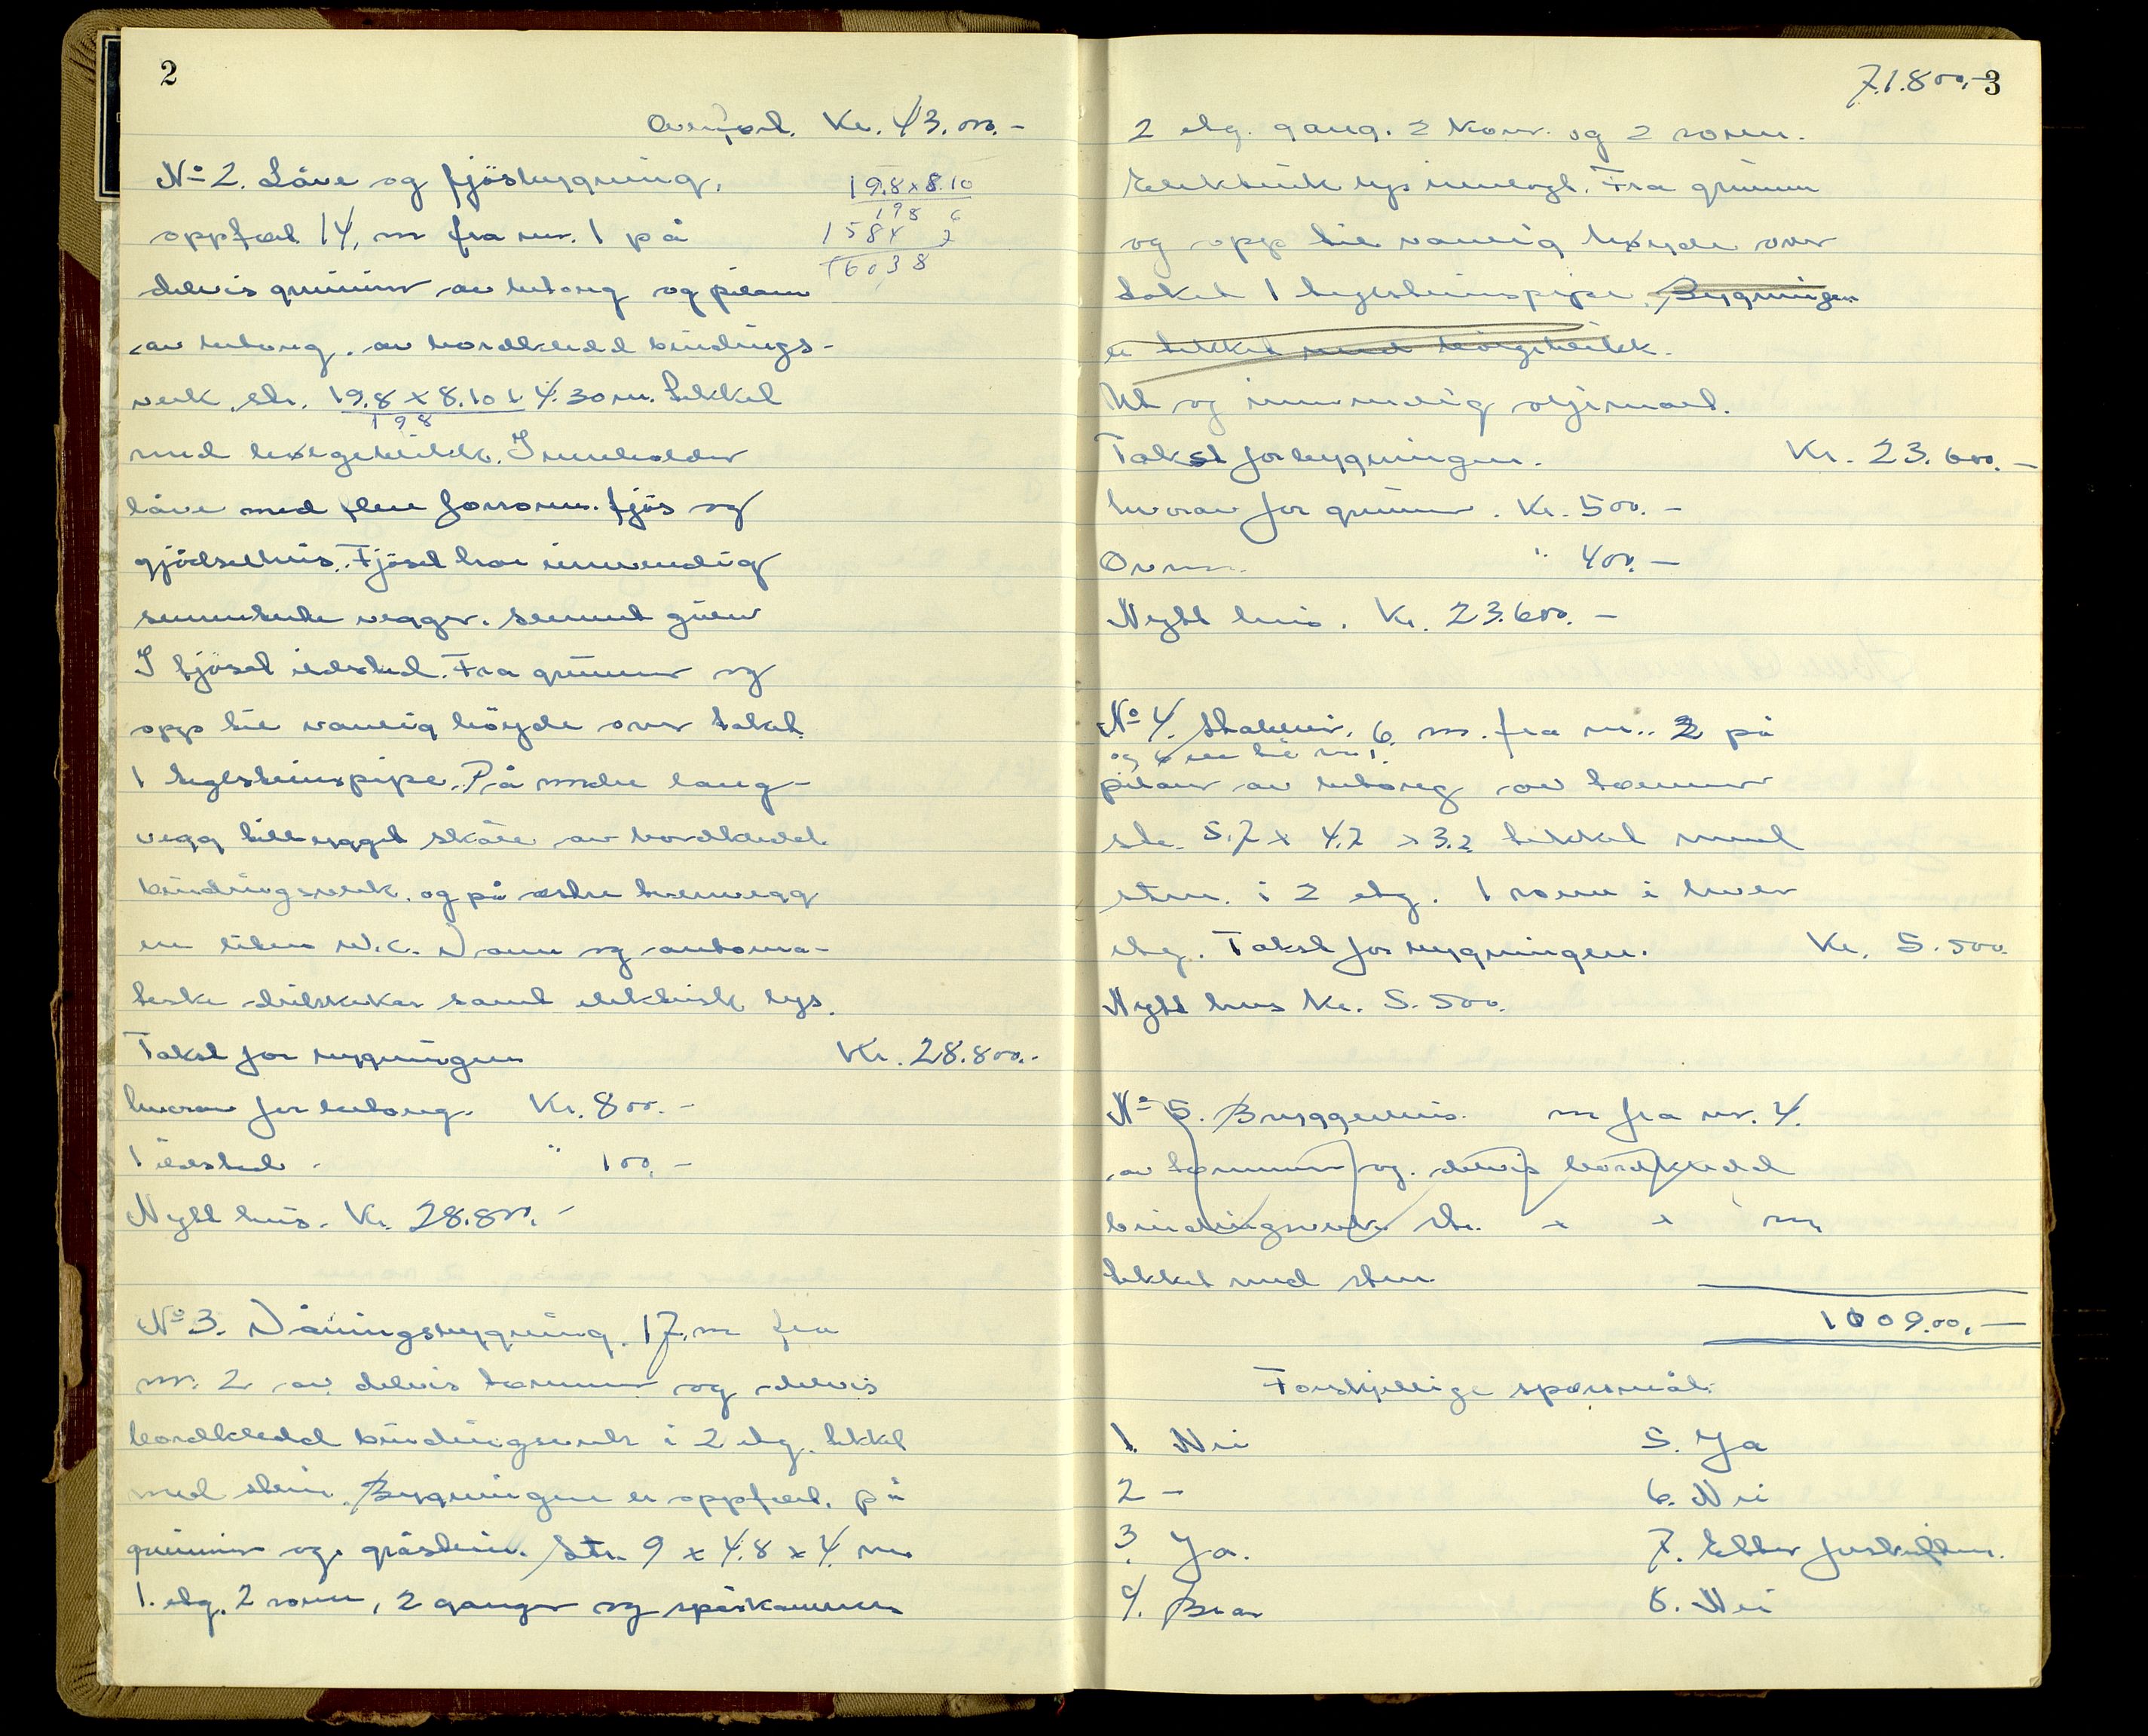 2
Overført. Kr. 43.000.-
No 2. Låve og fjösbygning,
19.8x8.10
198
1584
16038
oppført 14, m fra nr. 1 på
delvis grunnmur av betong og pilarer
av betong. av bordkledd bindings-
verk. str. 19.8 x 8.10 x 4.30 m. tekket
198
med bølgeblikk. Inneholder
låve med flere forrom. fjös og
gjödselhus. Fjöset har innvendig
sementerte vegger. sement gulv
I fjöset ildsted. Fra grunnen og
opp til vanlig höyde over taket
1 teglsteinspipe. På nordre lang-
vegg tilbygget skåle av bordkledd
bindingsverk. og på østre tverrvegg
en liten W.C. Vann og automa-
tiske drikkekar samt elektrisk lys.
Takst for bygningen Kr. 28.800.-
hvorav for betong. Kr. 800.-
1 ildsted . " 100.-
Nytt hus. Kr. 28.800.-
No 3. Våningsbygning. 17. m fra
nr. 2 av delvis tømmer og delvis
bordkledd bindingsverk i 2 etg. tekket
med stein. Bygningen er oppført. på
grunnmur og gråstein. Str. 9 x 4.8 x 4 m
1. etg. 2 rom, 2 ganger og spiskammer
71.800.- 3
2 etg. gang. 2 kov. og 2 rom.
Elektrisk lys innlagt. Fra grunnen
og opp til vanlig høyde over
taket 1 teglsteinspipe. Bygningen
er tekket med bølgeblikk.
Ut og innvendig oljemalt.
Takst for bygningen. Kr. 23.600.-
hvorav for grunnmur. Kr. 500.-
Ovner. " 400.-
Nytt hus. Kr. 23.600.-
No 4. Stabbur. 6. m. fra nr. 2 på
og 6 m til nr 1.
pilarer av betong av tømmer
str. 5.7 x 4.7 x 3.2 tekket med
sten. i 2 etg. 1 rom i hver
etg. Takst for bygningen. Kr. 5.500.
Nytt hus Kr. 5.500.
No 5. Bryggerhus. m fra nr. 4.
av tømmer og. delvis bordkledd
bindingsverk str. x x m
tekket med sten
1009.00.-
Forskjellige spørsmål.
1. Nei 5. Ja
2 - 6. Nei
3. Ja. 7. Etter forskriften.
4. Bra 8. Nei